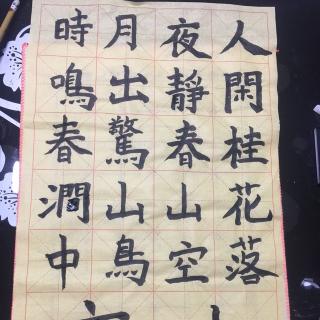 人閑桂花落
夜靜春山空
月出驚山鳥
時鳴春澗中